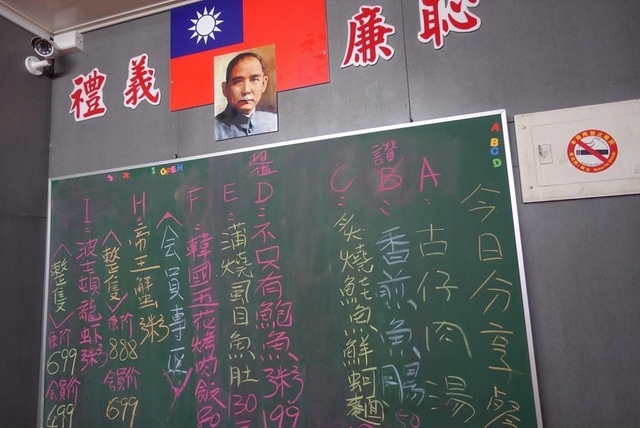 禮義
廉恥
A B C D
今日分享
A:古仔肉湯
讚
B:香煎魚腸 50
C:炙燒魠魚鮮蚵麵
D:不只有鮑魚粥199
E:蒲燒虱目魚肚
F:韓國五花烤肉飯80
<會員專區>
H:帝王蟹粥
<整隻>原價888 會員價699
I:波士頓龍蝦粥
<整隻>原價699 會員價499